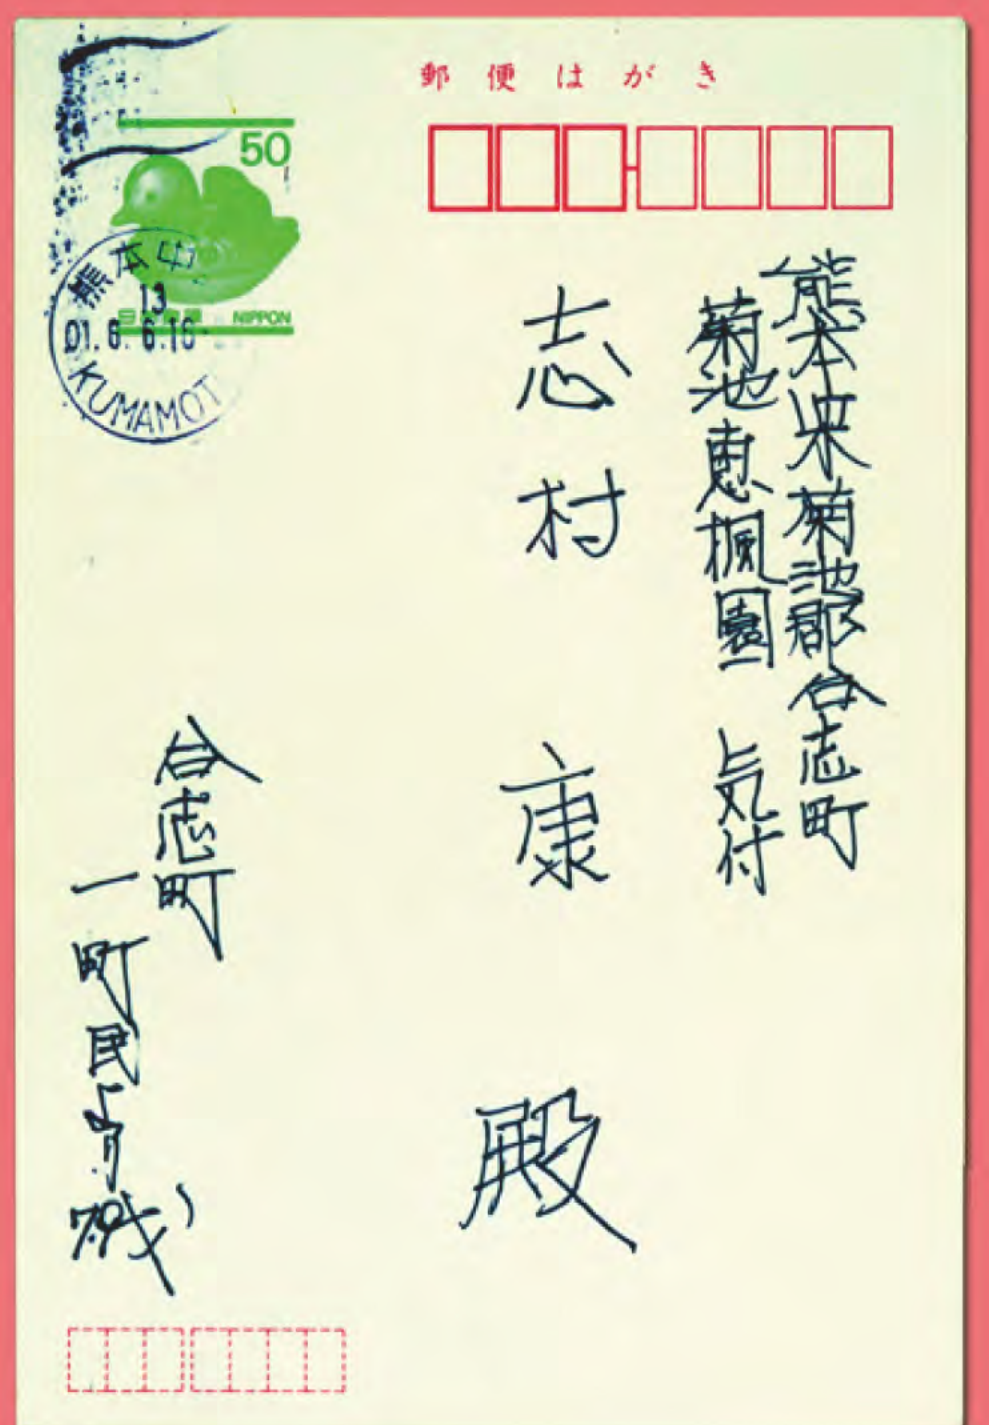 郵便はがき
50
NIPPON
熊本中
13
01.6.6.16
KUMAMOT
熊本県菊池郡合志町
菊池恵楓園 気付
志村 康 殿
合志町
一町民より
79才